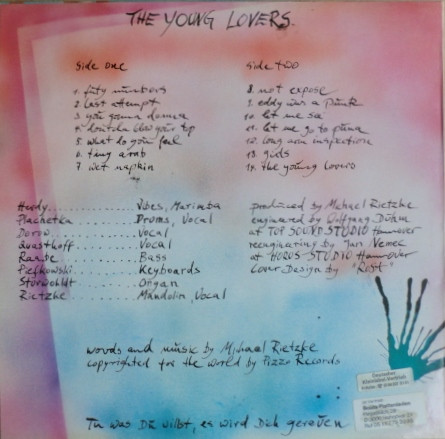 THE YOUNG LOVERS.
Side one
1. fity numbers
2. last attempt
3. you gonna dance
4. don't cha blow your top
5. what do you feel
6. tiny arab
7. wet napkin
Side two
8. not expose
9. eddy was a punk
10. let me
11. let me go to
12. long arm inspection
13. girls
14. the young lovers
Hardy............Vibes, Marimba
Plachetka............Drums, Vocal
Dorow............Vocal
Quasthoff............Vocal
Raabe............Bass
Piefkowski............Keyboards
............Organ
Rietzke............Mandolin, Vocal
produced by Michael Rietzke
engineered by Wolfgang
at TOP SOUND STUDIO Hannover
reenginating by Jan Nemec
at HORUS STUDIO Hannover
Cover Design by "Rost"
words and music by Michael Rietzke
copyrighted for the World by Pizzo Records
Tu was Du willst, es wird Dich gereuen